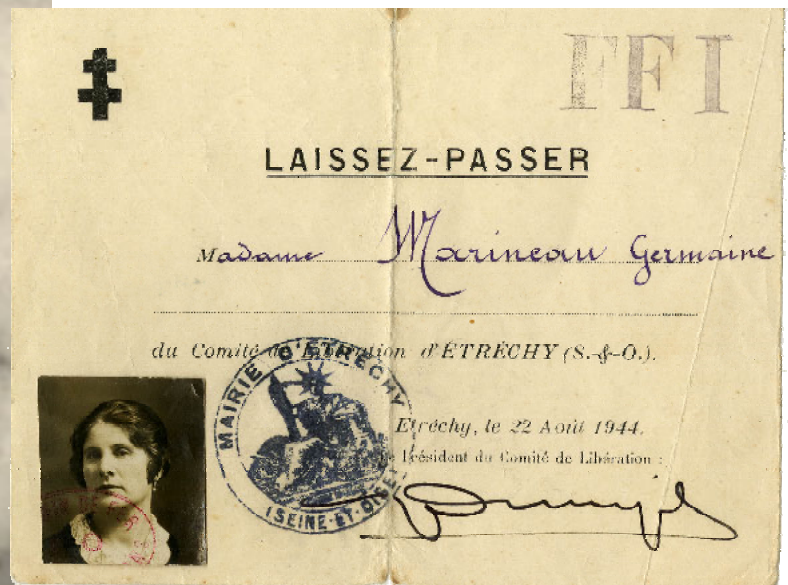 FFI
LAISSEZ-PASSER
Madame Marineau Germaine
du Comité de Libération d'ÉTRÉCHY (S.-&-O.).
MAIRIE D'ÉTRÉCHY
(SEINE-ET-OISE)
Etréchy, le 22 Août 1944.
Le Président du Comité de Libération :